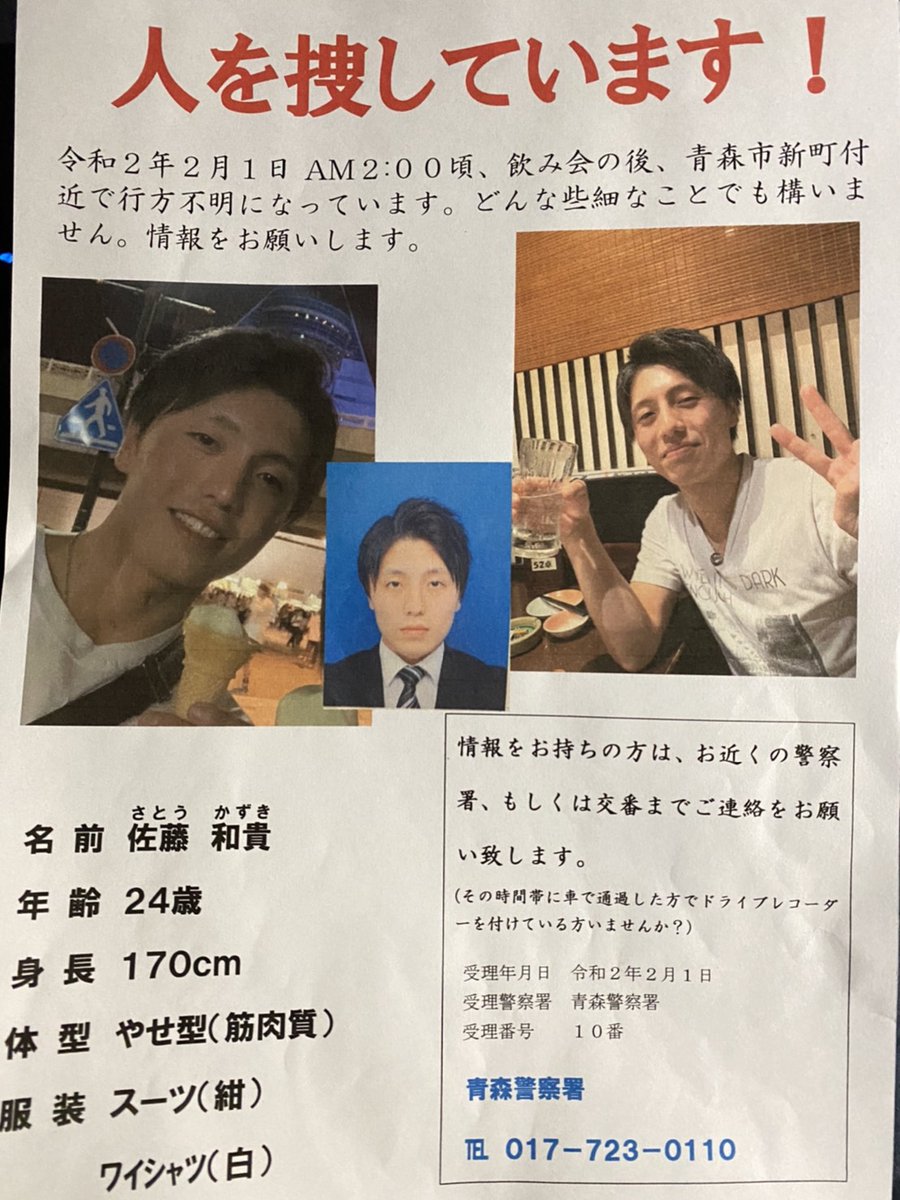 人を捜しています！
令和２年２月１日 AM２:００頃、飲み会の後、青森市新町付
近で行方不明になっています。どんな些細なことでも構いま
せん。情報をお願いします。
52卓
DARK
情報をお持ちの方は、お近くの警察
署、もしくは交番までご連絡をお願
い致します。
(その時間帯に車で通過した方でドライブレコーダ
ーを付けている方いませんか？)
受理年月日　令和２年２月１日
受理警察署　青森警察署
受理番号　１０番
青森警察署
℡ 017−723−0110
さとう かずき
名前 佐藤 和貴
年齢 24歳
身長 170cm
体型 やせ型(筋肉質)
服装 スーツ(紺)
ワイシャツ(白)